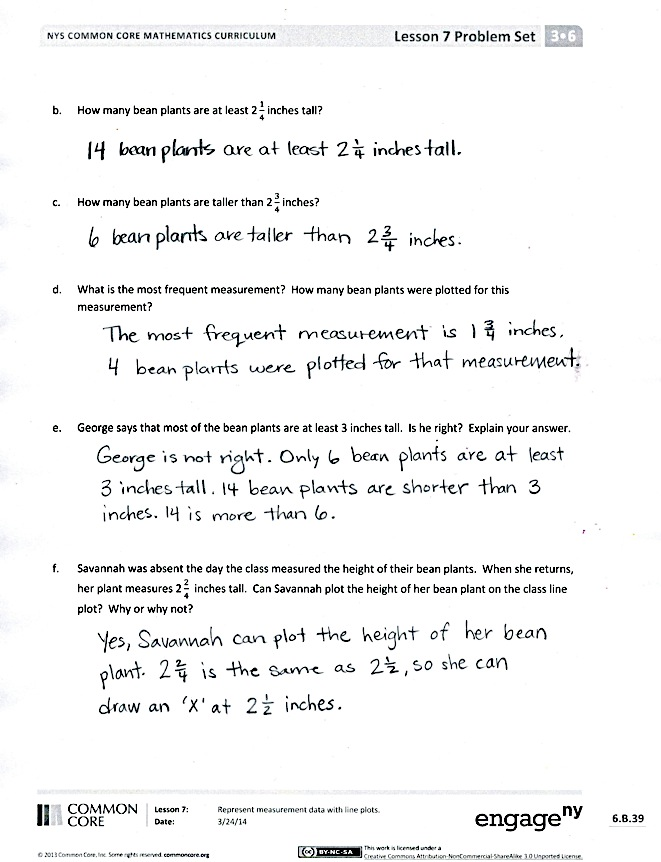 NYS COMMON CORE MATHEMATICS CURRICULUM Lesson 7 Problem Set 3•6
b. How many bean plants are at least 2 1/4 inches tall?
14 bean plants are at least 2 1/4 inches tall.
c. How many bean plants are taller than 2 3/4 inches?
6 bean plants are taller than 2 3/4 inches.
d. What is the most frequent measurement? How many bean plants were plotted for this
measurement?
The most frequent measurement is 1 3/4 inches.
4 bean plants were plotted for that measurement.
e. George says that most of the bean plants are at least 3 inches tall. Is he right? Explain your answer.
George is not right. Only 6 bean plants are at least
3 inches tall. 14 bean plants are shorter than 3
inches. 14 is more than 6.
f. Savannah was absent the day the class measured the height of their bean plants. When she returns,
her plant measures 2 2/4 inches tall. Can Savannah plot the height of her bean plant on the class line
plot? Why or why not?
Yes, Savannah can plot the height of her bean
plant. 2 2/4 is the same as 2 1/2, so she can
draw an 'X' at 2 1/2 inches.
COMMON
CORE
Lesson 7: Represent measurement data with line plots.
Date: 3/24/14
engage ny
6.B.39
© 2013 Common Core, Inc. Some rights reserved. commoncore.org
CC BY-NC-SA
This work is licensed under a
Creative Commons Attribution-NonCommercial-ShareAlike 3.0 Unported License.